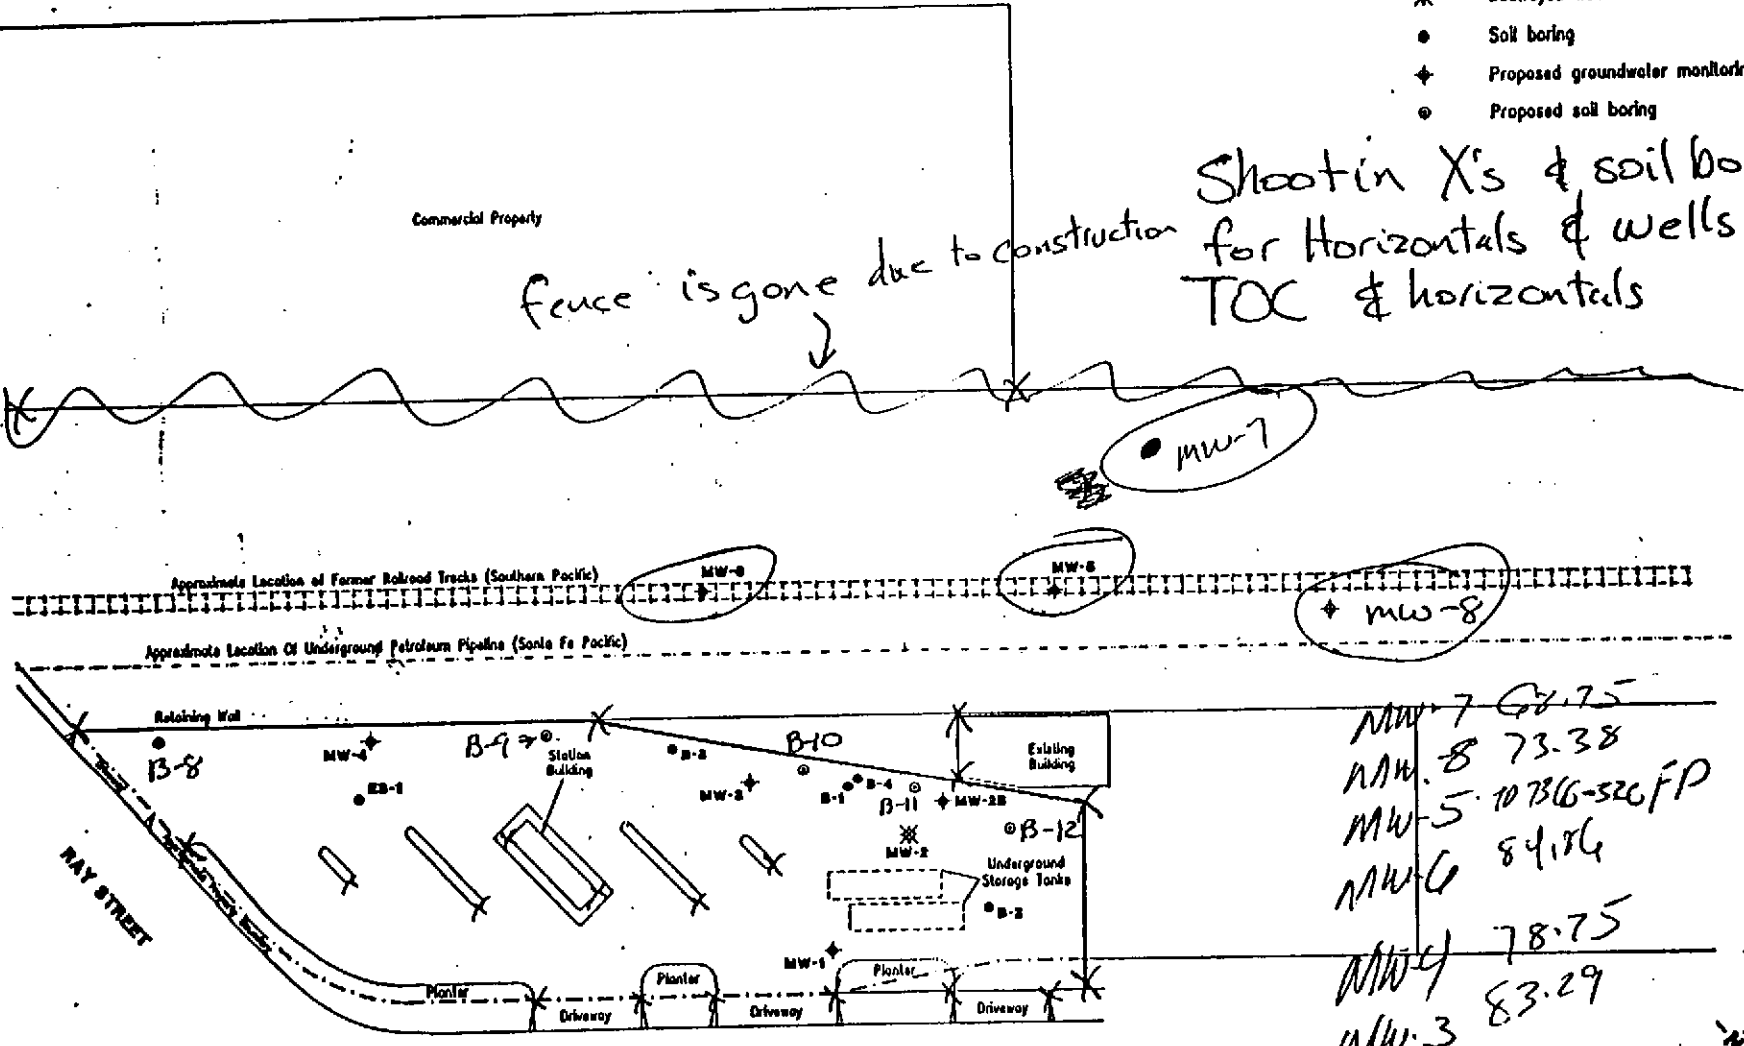 Soil boring
Proposed groundwater monitorin
Proposed soil boring
Shoot in X's & soil bo
for Horizontals & wells
TOC & horizontals
Commercial Property
fence is gone due to construction
MW-7
Approximate Location of Former Railroad Tracks (Southern Pacific)
MW-6
MW-5
MW-8
Approximate Location Of Underground Petroleum Pipeline (Santa Fe Pacific)
Retaining Wall
B-8
MW-4
EB-1
B-9
Station
Building
B-10
MW-3
B-1
B-4
B-11
MW-2B
Existing
Building
B-12
MW-2
Underground
Storage Tanks
MW-1
RAY STREET
Planter
Driveway
Planter
Driveway
Planter
Driveway
MW-7
MW-8 73.38
MW-5
MW-6 84.86
MW-4 78.75
MW-3 83.29